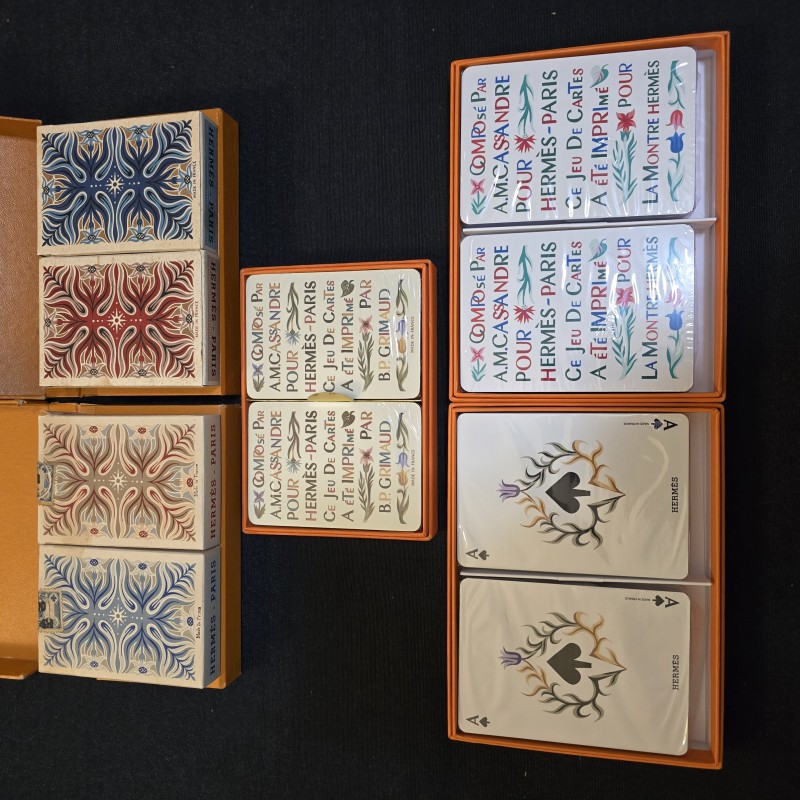 Made in France
HERMÈS - PARIS
Made in France
HERMÈS - PARIS
MADE IN FRANCE
HERMÈS - PARIS
MADE IN FRANCE
HERMÈS - PARIS
COMPOSÉ PAR
A.M.CASSANDRE
POUR
HERMÈS-PARIS
CE JEU DE CARTES
A ÉTÉ IMPRIMÉ
PAR
B.P. GRIMAUD
MADE IN FRANCE
COMPOSÉ PAR
A.M.CASSANDRE
POUR
HERMÈS-PARIS
CE JEU DE CARTES
A ÉTÉ IMPRIMÉ
PAR
B.P. GRIMAUD
MADE IN FRANCE
A
HERMÈS
MADE IN FRANCE
A
A
HERMÈS
MADE IN FRANCE
A
COMPOSÉ PAR
A.M.CASSANDRE
POUR
HERMÈS-PARIS
CE JEU DE CARTES
A ÉTÉ IMPRIMÉ
POUR
LA MONTRE HERMÈS
COMPOSÉ PAR
A.M.CASSANDRE
POUR
HERMÈS-PARIS
CE JEU DE CARTES
A ÉTÉ IMPRIMÉ
POUR
LA MONTRE HERMÈS